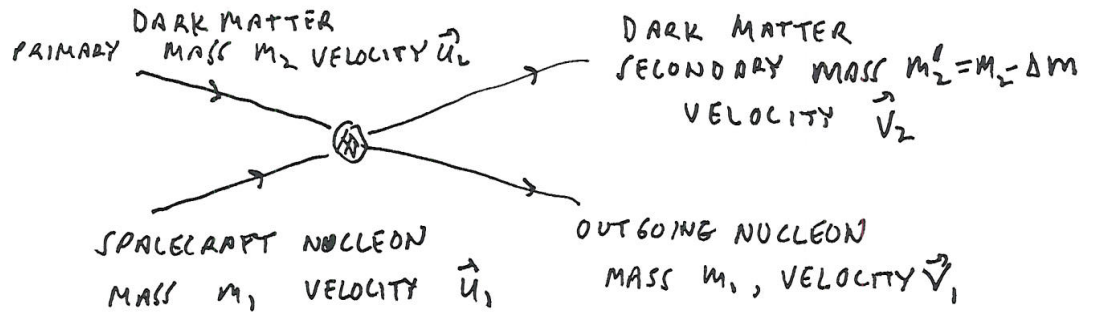 DARK MATTER
PRIMARY MASS m₂ VELOCITY u⃗₂
DARK MATTER
SECONDARY MASS m₂' = m₂ - Δm
VELOCITY v⃗₂
SPACECRAFT NUCLEON
MASS m₁ VELOCITY u⃗₁
OUTGOING NUCLEON
MASS m₁, VELOCITY v⃗₁